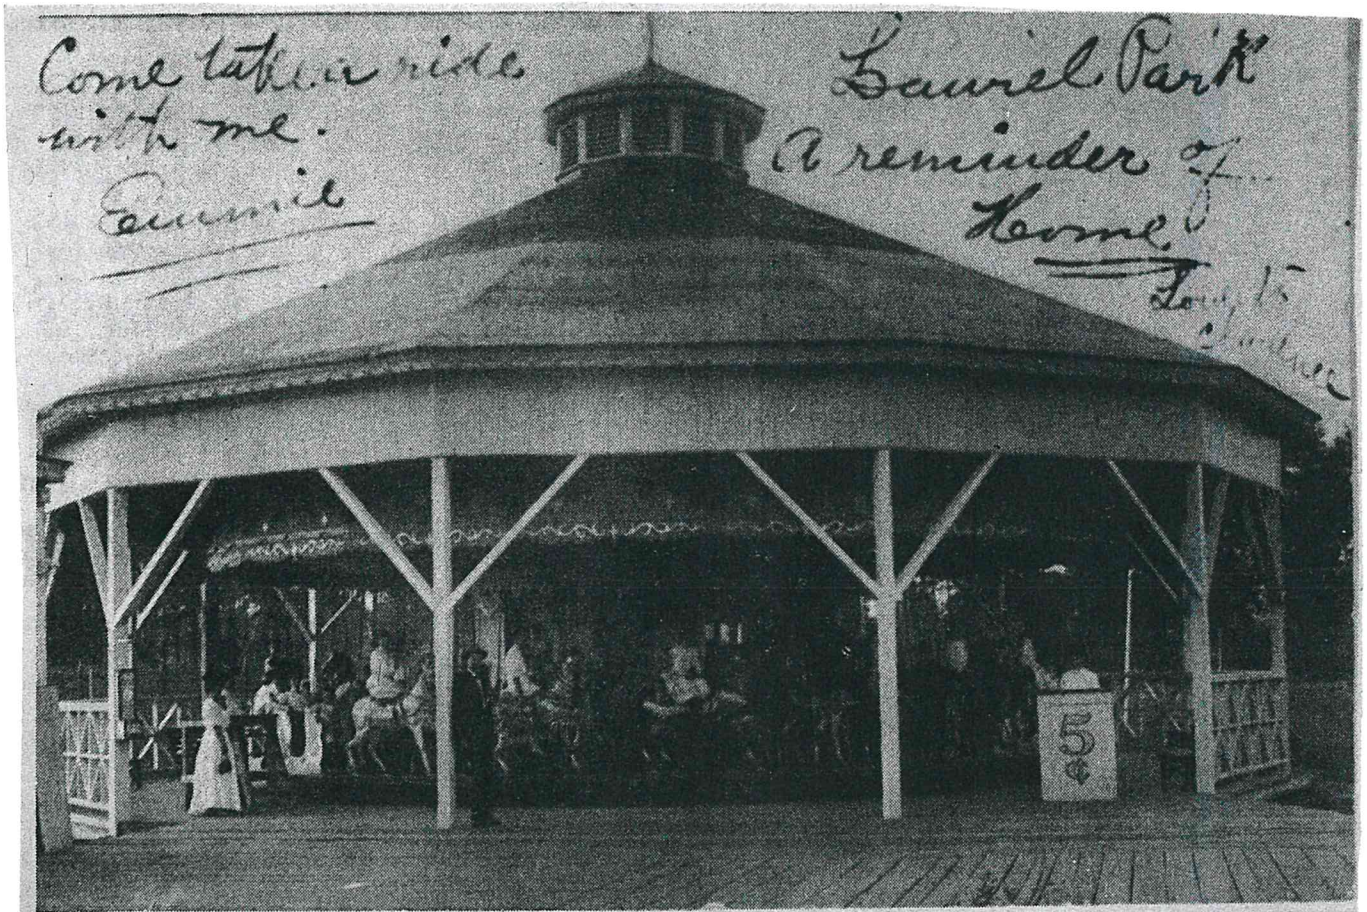 Come take a ride
with me.
Emmie
Laurel Park
A reminder of
Home
5
¢